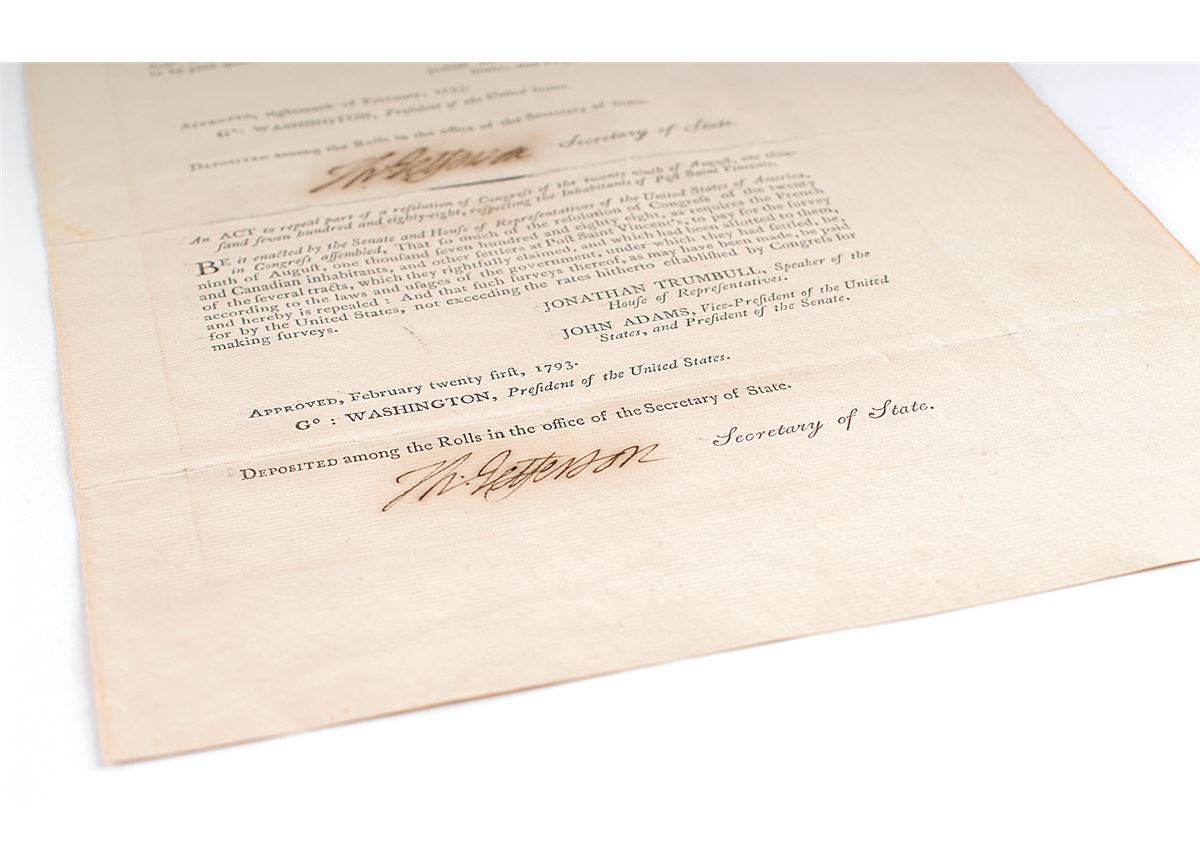 APPROVED, eighteenth of February, 1793.
Gº: WASHINGTON, Preſident of the United States.
DEPOSITED among the Rolls in the office of the Secretary of State.
Th. Jefferson Secretary of State.
An ACT to repeal part of a reſolution of Congreſs of the twenty ninth of Auguſt, one thou-
ſand ſeven hundred and eighty-eight, reſpecting the Inhabitants of Poſt Saint Vincents.
BE it enacted by the Senate and Houſe of Repreſentatives of the United States of America,
in Congreſs aſſembled, That ſo much of the reſolution of Congreſs of the twenty
ninth of Auguſt, one thouſand ſeven hundred and eighty eight, as requires the French
and Canadian inhabitants, and other ſettlers at Poſt Saint Vincent's, to pay for the ſurvey
of the ſeveral tracts, which they rightfully claimed, and which had been allotted to them,
according to the laws and uſages of the government, under which they had ſettled, be,
and hereby is repealed: And that ſuch ſurveys thereof, as may have been made, be paid
for by the United States, not exceeding the rates hitherto eſtabliſhed by Congreſs for
making ſurveys.
JONATHAN TRUMBULL, Speaker of the
Houſe of Repreſentatives.
JOHN ADAMS, Vice-Preſident of the United
States, and Preſident of the Senate.
APPROVED, February twenty firſt, 1793.
Gº: WASHINGTON, Preſident of the United States.
DEPOSITED among the Rolls in the office of the Secretary of State.
Th. Jefferson Secretary of State.